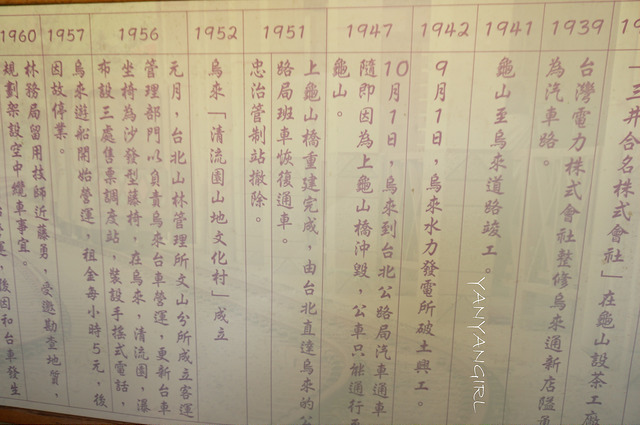 1960 1957 1956 1952 1951 1947 1942 1941 1939 19
「三井合名株式會社」在龜山設茶工廠
台灣電力株式會社整修烏來通新店隘
為汽車路。
龜山至烏來道路竣工。
9月1日，烏來水力發電所破土興工。
10月1日，烏來到台北公路局汽車通車
隨即因為上龜山橋沖毀，公車只能通行至
龜山。
上龜山橋重建完成，由台北直達烏來的公
路局班車恢復通車。
忠治管制站撤除。
烏來「清流園山地文化村」成立
元月，台北山林管理所文山分所成立客運
管理部門以負責烏來台車營運，更新台車
坐椅為沙發型藤椅，在烏來，清流園，瀑
布設三處售票調度站，裝設手搖式電話，
烏來遊船開始營運，租金每小時5元，後
因故停業。
林務局留用技師近藤勇，受邀勘查地質，
規劃架設空中纜車事宜。
營運，後因和台車發生
YANYANGIRL